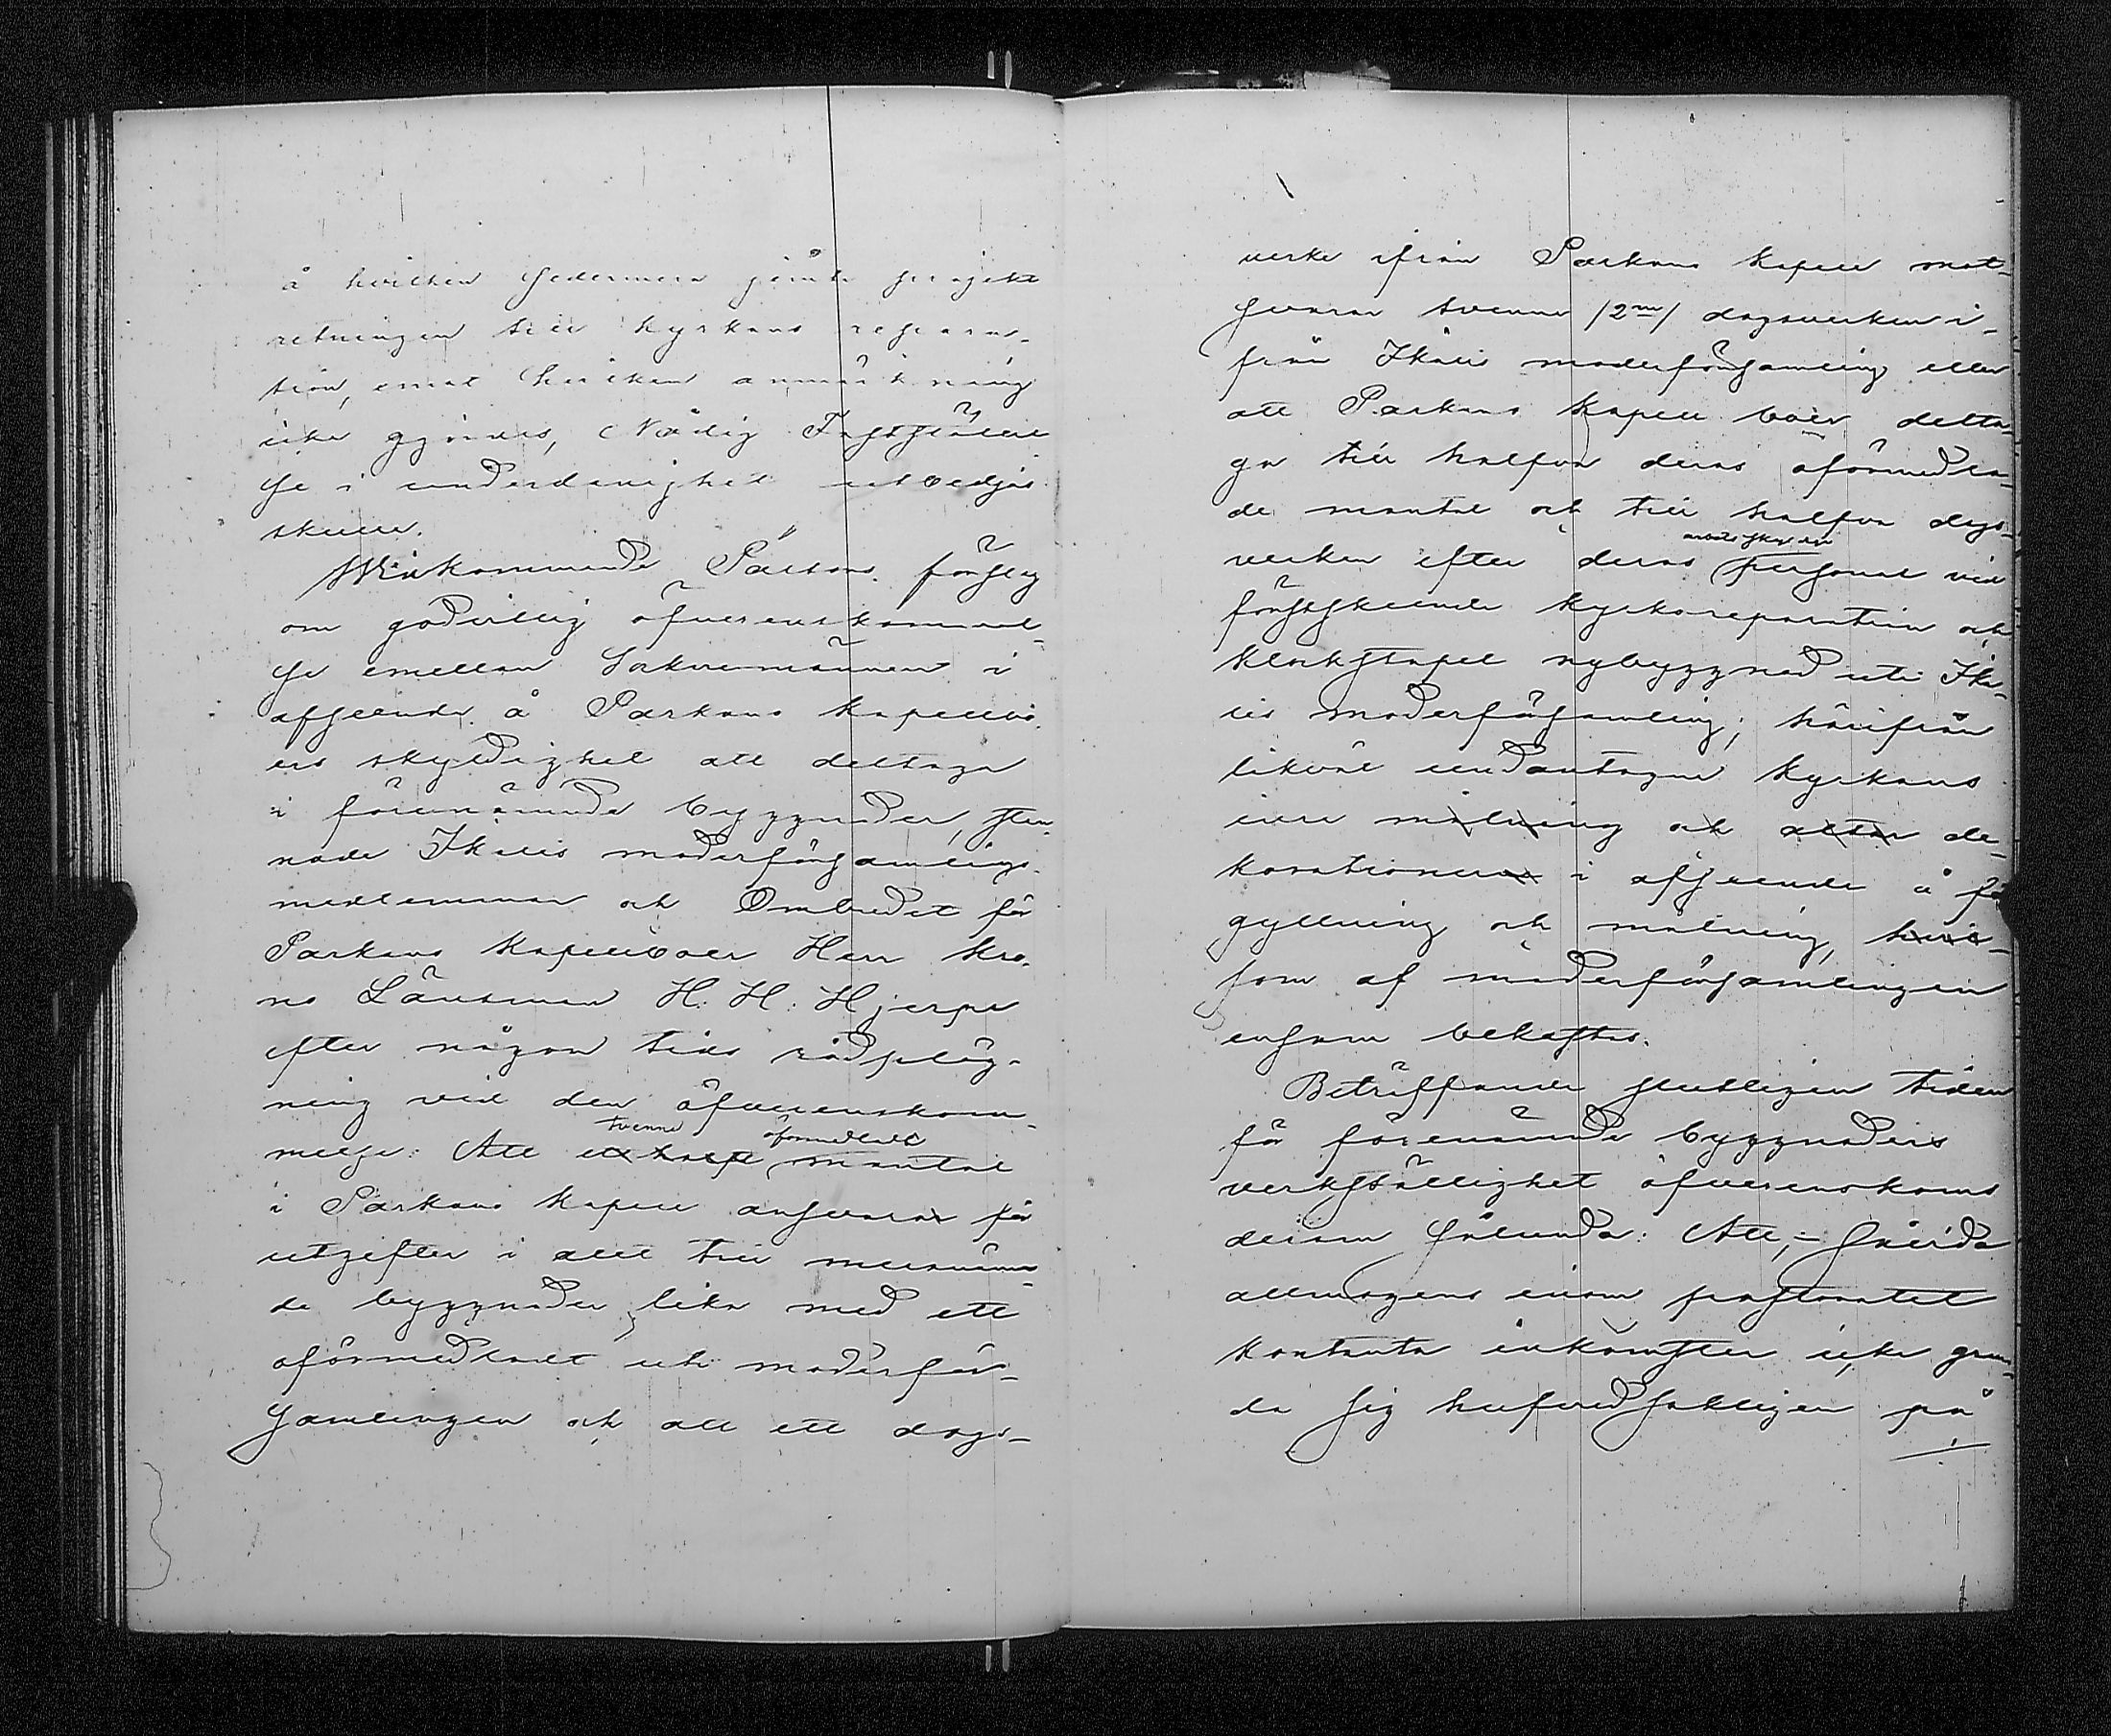 å hvilken sedermera jämte projekt
retningen till kyrkans repara-
tion, emot hvilken anmärkning
icke gjordes, Nådig Fastställel-
se i underdånighet utbedjas
skulle.
Widkommande Parkano förslag
om godvillig öfverenskommel-
se emellan Sockenmännen i
afseende å Parkano kapellbo-
ers skyldighet att deltaga
i förenämnde byggnader, stan-
nade Ikalis moderförsamlings
medlemmar och Ombudet för
Parkano kapellboer Herr Kro-
no Länsman H. H: Hjerpe
efter någon tids rådpläg-
ning vid den öfverenskom-
tvenne oförmedladt
melse: Att ett helt mantal
i Parkano kapell ansvarar för
utgifter i allt till meranämn-
de byggnader lika med ett
oförmedladt uti moderför-
samlingen och att ett dags-
verke ifrån Parkano kapell mot-
svarar tvenne /2ne/ dagsverken i-
från Ikalis moderförsamling eller
att Parkano kapell boer delta-
ga till halfva deras oförmedla-
de mantal och till halfva dags-
verken efter deras personal vid
förestående kyrkoreparation och
klockstapel nybyggnad uti Ika-
lis moderförsamling; härifrån
likväl undantagne kyrkans
inre målning och altar de-
korationen i afseende å för-
gyllning och målning, hvil-
som af moderförsamlingen
ensam bekostas.
Beträffande slutligen tiden
för förenämnde byggnaders
verkställighet öfverenskoms
derom sålunda: Att, – såvida
allmogens inom pastoratet
kontanta inkomster icke grun-
da sig hufvudsakligen på